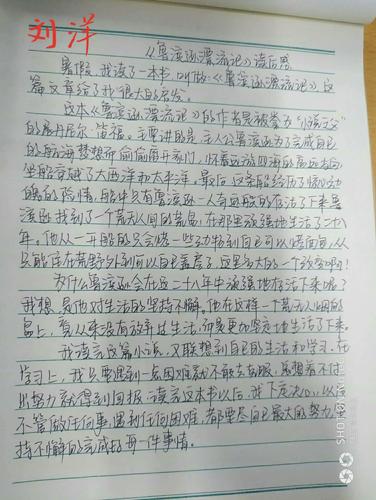 刘洋
《鲁滨逊漂流记》读后感
暑假，我读了一本书，叫做《鲁滨逊漂流记》，这
篇文章给了我很大的启发。
这本《鲁滨逊漂流记》的作者是被奉为“小说之父”
的丹尼尔·笛福。主要讲的是：主人公鲁滨逊为了完成自己
的航海梦想而偷偷离开家门，怀着远游四海的高远志向
坐船穿越了大西洋和太平洋。最后，这条船经历了惊心动
魄的险情，船中只有鲁滨逊一人奇迹般的存活了下来鲁
滨逊找到了一个荒无人间的荒岛，在那里顽强地生活了二十八
年。他从一开始的只会烤一些动物到自己可以烤面包，从
只能住在荒野外到可以自己盖房子，这是多大的一个改变啊！
为什么鲁滨逊会在这二十八年中顽强地存活下来呢？
我想，是他对生活的坚持不懈。他在这样一个荒无人烟的
岛上，看从来没有放弃过生活，而是更加坚定地生活了下来。
我读完这篇小说，又联想到自己的生活和学习。在
学习上，我只要遇到一点困难就不敢去克服，总想着不付
出努力就得到回报。读完这本书以后，我下定决心，以后
不管做任何事，遇到任何困难，都要尽自己最大的努力，坚
持不懈的完成好每一件事情。
SHOT ON